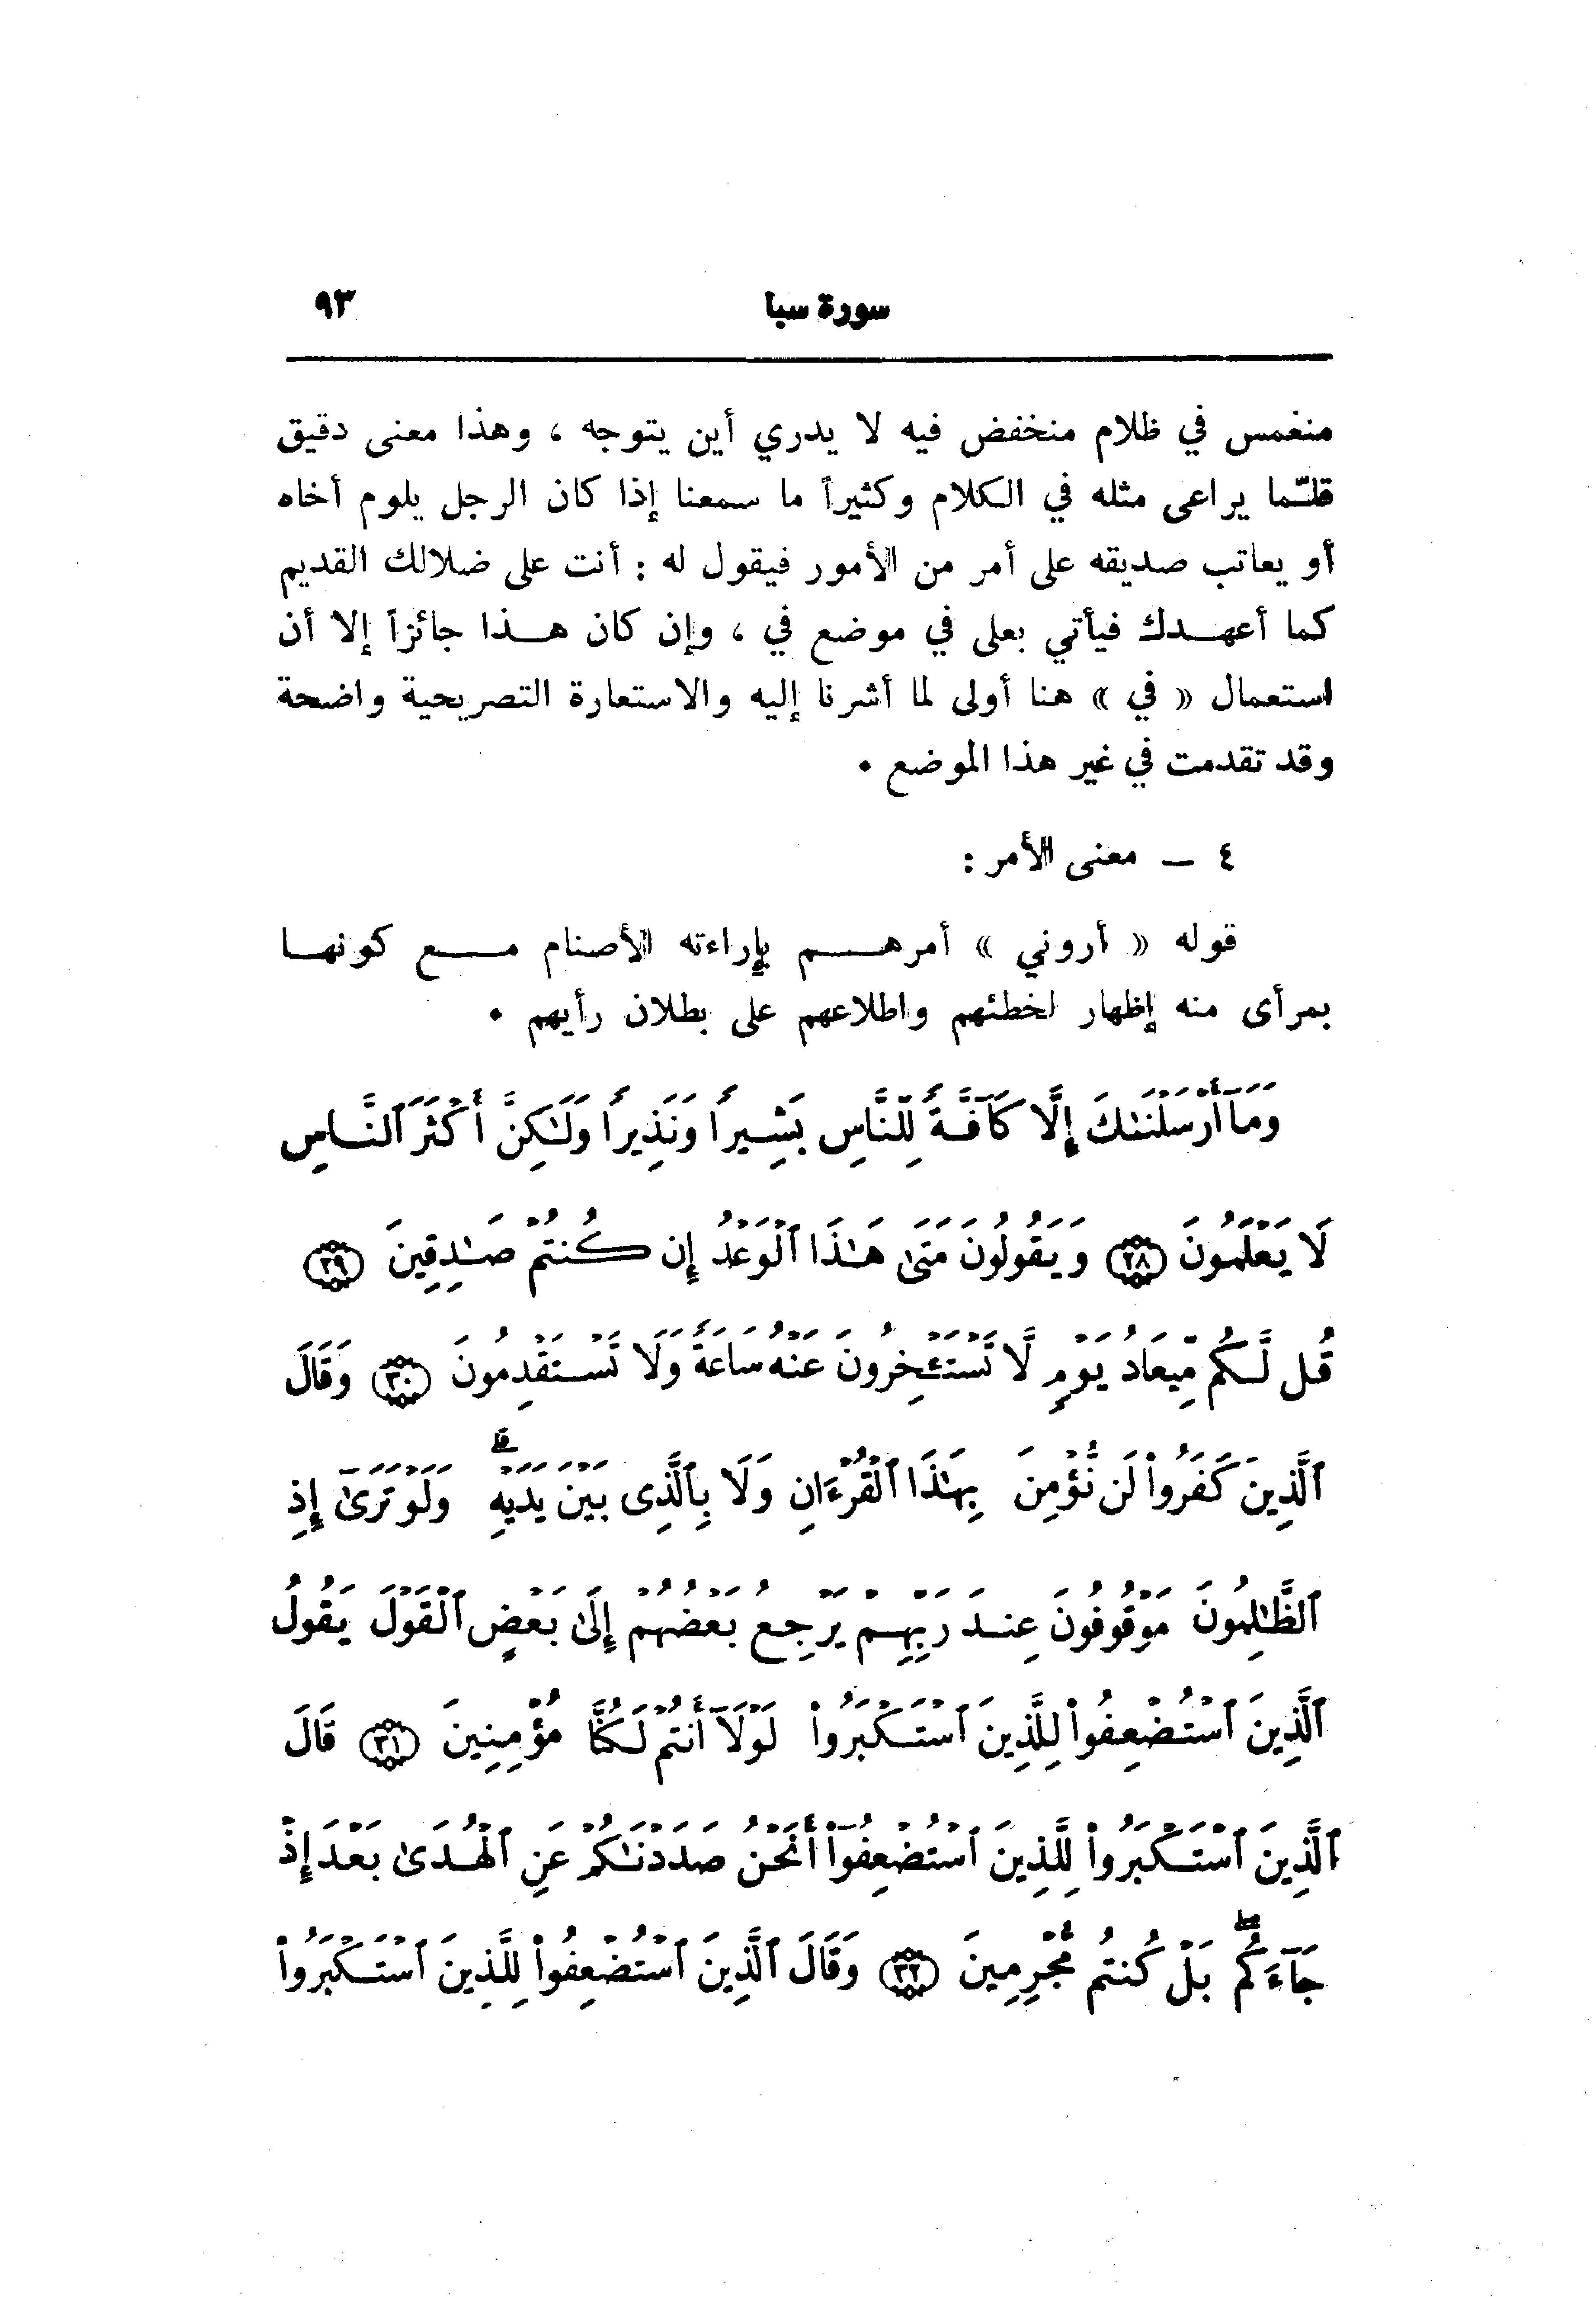 سورة سبا ٩٣
منغمس في ظلام منخفض فيه لا يدري أين يتوجه ، وهذا معنى دقيق
قلّما يراعى مثله في الكلام وكثيراً ما سمعنا إذا كان الرجل يلوم أخاه
أو يعاتب صديقه على أمر من الأمور فيقول له : أنت على ضلالك القديم
كما أعهدك فيأتي بعلى في موضع في ، وإن كان هذا جائزاً إلا أن
استعمال « في » هنا أولى لما أشرنا إليه والاستعارة التصريحية واضحة
وقد تقدمت في غير هذا الموضع .
٤ – معنى الأمر :
قوله « أروني » أمرهم بإراءته الأصنام مع كونها
بمرأى منه إظهار لخطئهم واطلاعهم على بطلان رأيهم .
وَمَآ أَرْسَلْنَٰكَ إِلَّا كَآفَّةً لِّلنَّاسِ بَشِيرًا وَنَذِيرًا وَلَٰكِنَّ أَكْثَرَ ٱلنَّاسِ
لَا يَعْلَمُونَ ﴿٢٨﴾ وَيَقُولُونَ مَتَىٰ هَٰذَا ٱلْوَعْدُ إِن كُنتُمْ صَٰدِقِينَ ﴿٢٩﴾
قُل لَّكُم مِّيعَادُ يَوْمٍ لَّا تَسْتَـْٔخِرُونَ عَنْهُ سَاعَةً وَلَا تَسْتَقْدِمُونَ ﴿٣٠﴾ وَقَالَ
ٱلَّذِينَ كَفَرُوا۟ لَن نُّؤْمِنَ بِهَٰذَا ٱلْقُرْءَانِ وَلَا بِٱلَّذِى بَيْنَ يَدَيْهِ ۗ وَلَوْ تَرَىٰٓ إِذِ
ٱلظَّٰلِمُونَ مَوْقُوفُونَ عِندَ رَبِّهِمْ يَرْجِعُ بَعْضُهُمْ إِلَىٰ بَعْضٍ ٱلْقَوْلَ يَقُولُ
ٱلَّذِينَ ٱسْتُضْعِفُوا۟ لِلَّذِينَ ٱسْتَكْبَرُوا۟ لَوْلَآ أَنتُمْ لَكُنَّا مُؤْمِنِينَ ﴿٣١﴾ قَالَ
ٱلَّذِينَ ٱسْتَكْبَرُوا۟ لِلَّذِينَ ٱسْتُضْعِفُوٓا۟ أَنَحْنُ صَدَدْنَٰكُمْ عَنِ ٱلْهُدَىٰ بَعْدَ إِذْ
جَآءَكُم ۖ بَلْ كُنتُم مُّجْرِمِينَ ﴿٣٢﴾ وَقَالَ ٱلَّذِينَ ٱسْتُضْعِفُوا۟ لِلَّذِينَ ٱسْتَكْبَرُوا۟